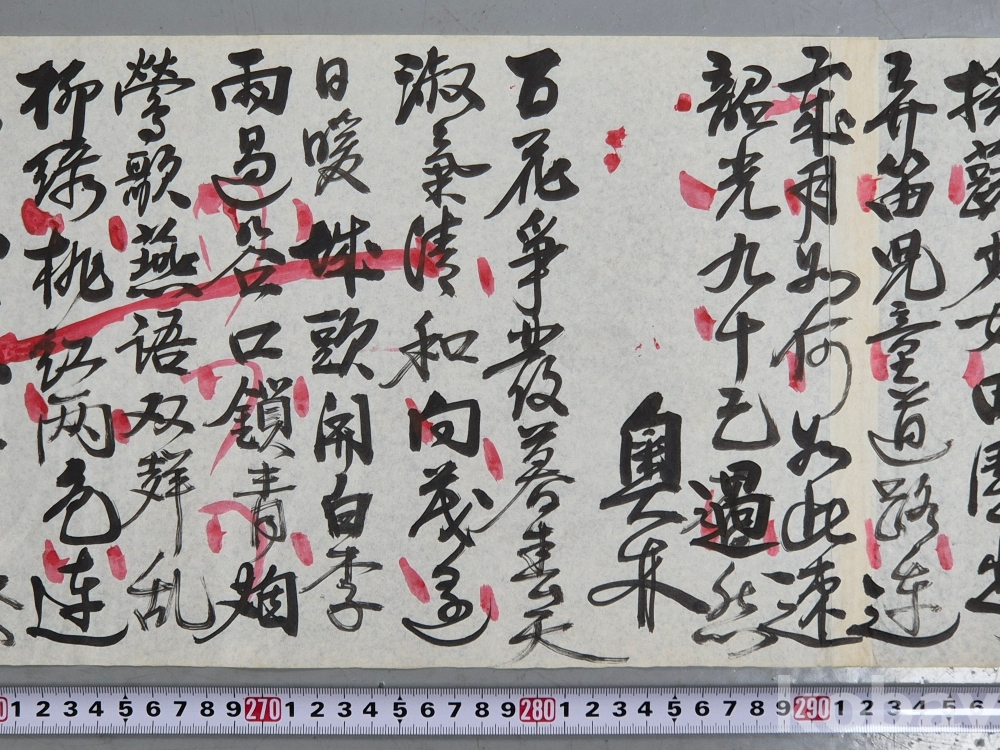 女田
弄笛児童道路連
歳月如何如此速
韶光九十已過然
奥木
百花爭發暮春天
淑氣清和向茂
日暖城頭開白李
雨過谷口鎖青烟
鶯歌燕語双群乱
柳緑桃紅两色连
1 2 3 4 5 6 7 8 9 270 1 2 3 4 5 6 7 8 9 280 1 2 3 4 5 6 7 8 9 290 1 2 3 4 5 6